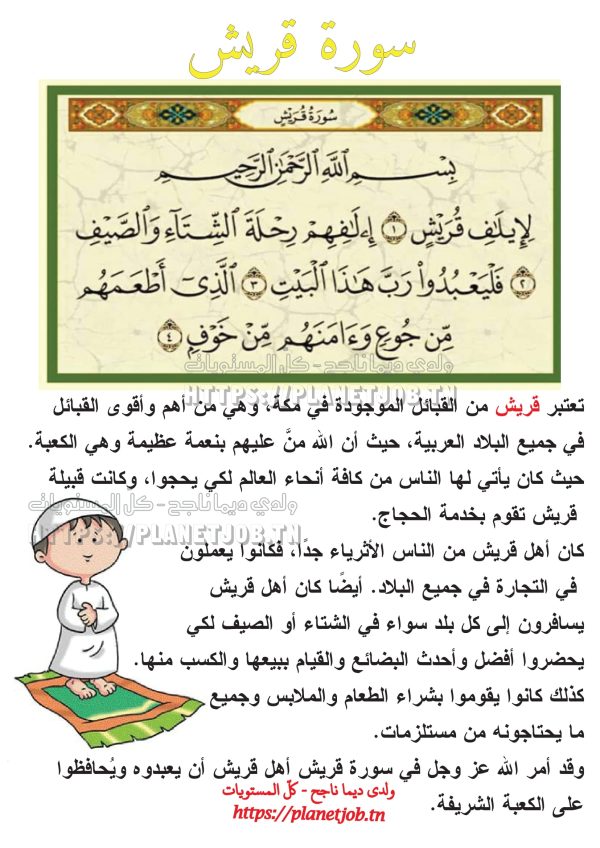 سورة قريش
سُورَةُ قُرَيْشٍ
بِسْمِ اللَّهِ الرَّحْمَٰنِ الرَّحِيمِ
لِإِيلَٰفِ قُرَيْشٍ ١ إِۦلَٰفِهِمْ رِحْلَةَ الشِّتَآءِ وَالصَّيْفِ
٢ فَلْيَعْبُدُوا۟ رَبَّ هَٰذَا الْبَيْتِ ٣ الَّذِىٓ أَطْعَمَهُم
مِّن جُوعٍ وَءَامَنَهُم مِّنْ خَوْفٍۭ ٤
ولدي ديما ناجح - كل المستويات
HTTPS://PLANETJOB.TN
تعتبر قريش من القبائل الموجودة في مكة، وهي من أهم وأقوى القبائل
في جميع البلاد العربية، حيث أن الله منَّ عليهم بنعمة عظيمة وهي الكعبة.
حيث كان يأتي لها الناس من كافة أنحاء العالم لكي يحجوا، وكانت قبيلة
ولدي ديما ناجح - كل المستويات
قريش تقوم بخدمة الحجاج.
HTTPS://PLANETJOB.TN
كان أهل قريش من الناس الأثرياء جداً، فكانوا يعملون
في التجارة في جميع البلاد. أيضًا كان أهل قريش
يسافرون إلى كل بلد سواء في الشتاء أو الصيف لكي
يحضروا أفضل وأحدث البضائع والقيام ببيعها والكسب منها.
كذلك كانوا يقوموا بشراء الطعام والملابس وجميع
ما يحتاجونه من مستلزمات.
وقد أمر الله عز وجل في سورة قريش أهل قريش أن يعبدوه ويُحافظوا
على الكعبة الشريفة.
ولدي ديما ناجح - كلّ المستويات
https://planetjob.tn